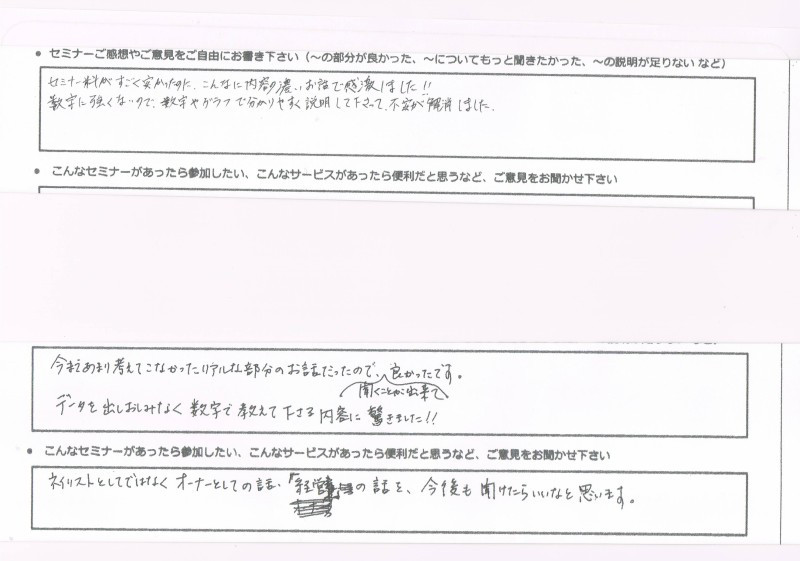 ● セミナーご感想やご意見をご自由にお書き下さい（～の部分が良かった、～についてもっと聞きたかった、～の説明が足りない など）
セミナー料がすごく安かったのに、こんなに内容の濃いお話で感激しました!!
数字に強くないので、数字やグラフで分かりやすく説明して下さって、不安が解消しました。
● こんなセミナーがあったら参加したい、こんなサービスがあったら便利だと思うなど、ご意見をお聞かせ下さい
今まであまり考えてこなかったリアルな部分のお話だったので、聞くことが出来て良かったです。
データを出しおしみなく数字で教えて下さる内容に驚きました!!
● こんなセミナーがあったら参加したい、こんなサービスがあったら便利だと思うなど、ご意見をお聞かせ下さい
ネイリストとしてではなくオーナーとしての話、「経営」の話を、今後も聞けたらいいなと思います。